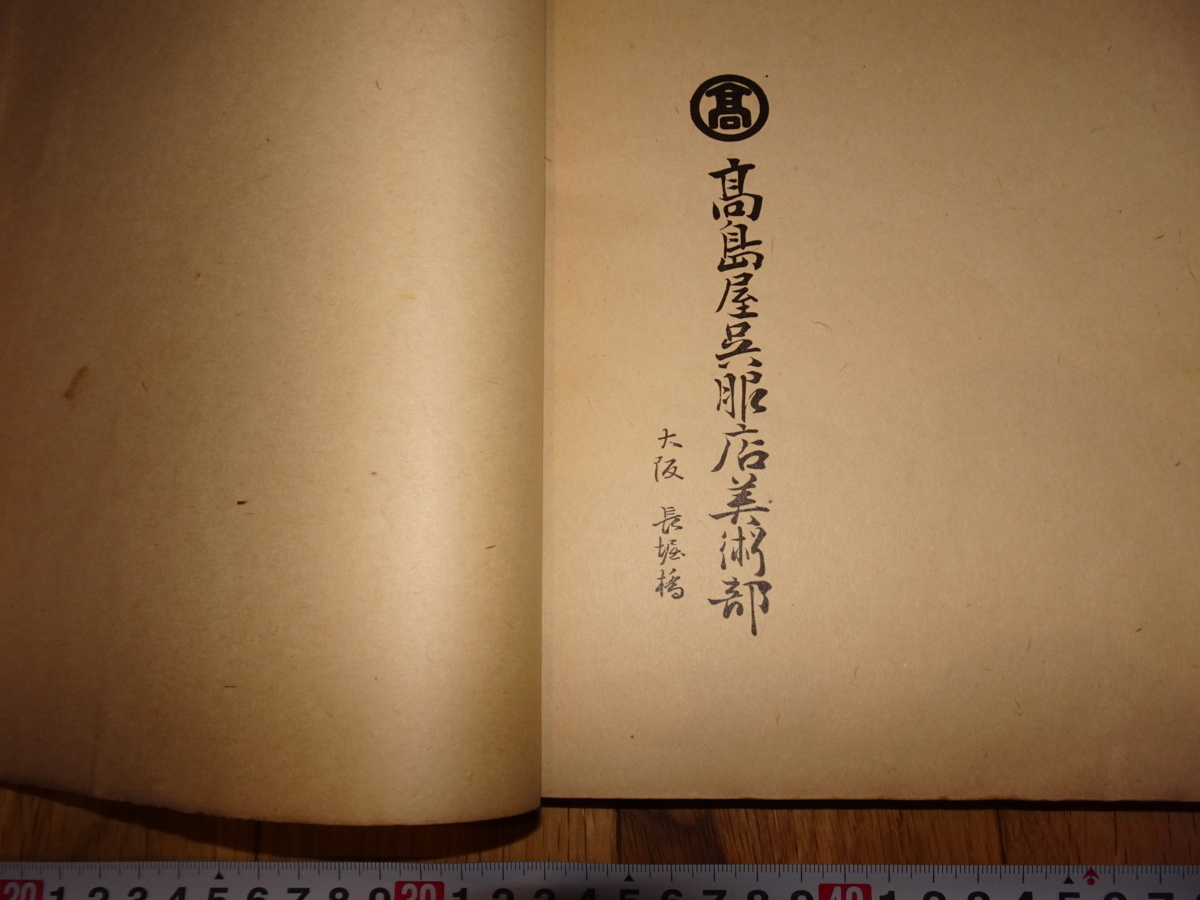 髙
髙島屋呉服店美術部
大阪 長堀橋
20 1 2 3 4 5 6 7 8 9 30 1 2 3 4 5 6 7 8 9 40 1 2 3 4 5 6 7